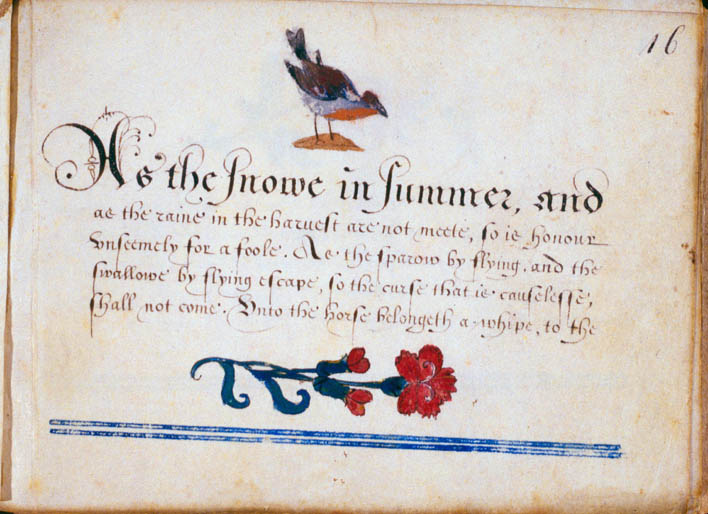 16
As the snowe in summer, and
as the raine in the harvest are not meete, so is honour
vnseemely for a foole. As the sparow by flying, and the
swallowe by flying escape, so the curse that is causelesse,
shall not come. Vnto the horse belongeth a whipe, to the